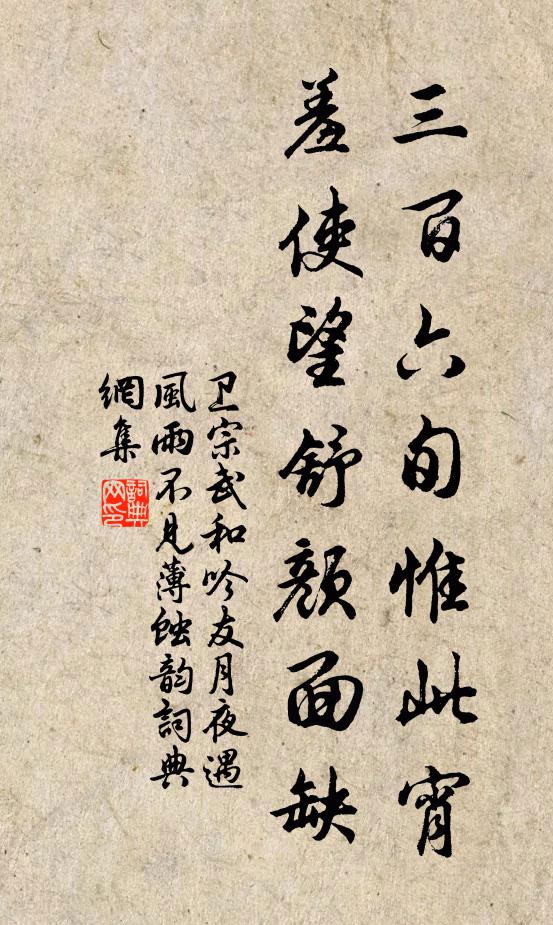 三百六旬惟此宵
羞使望舒顏面缺
卫宗武和吟友月夜遇
風雨不見薄蝕韵詞典
網集
詞典
网印